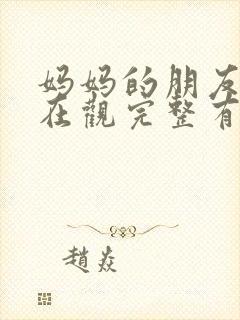 妈妈的朋友
在觀完整有
趙焱